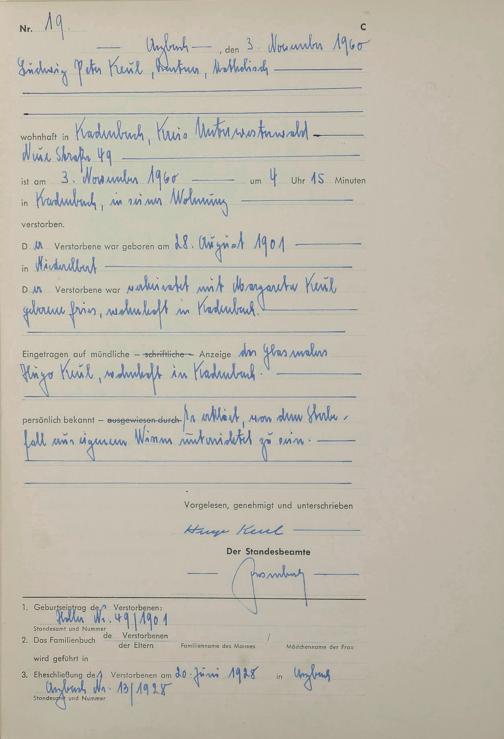 Nr. 19. C
Arzbach, den 3. November 1960
Ludwig Peter Keul, Rentner, katholisch
wohnhaft in Kadenbach, Kreis Unterwesterwald
Neue Straße 49
ist am 3. November 1960 um 4 Uhr 15 Minuten
in Kadenbach, in seiner Wohnung
verstorben.
D er Verstorbene war geboren am 28. August 1901
in Niederelbert
D er Verstorbene war verheiratet mit Margareta Keul
geborene Fries, wohnhaft in Kadenbach.
Eingetragen auf mündliche – schriftliche – Anzeige des Glasmalers
Hugo Keul, wohnhaft in Kadenbach.
persönlich bekannt – ausgewiesen durch Er erklärt, von dem Sterbe-
fall aus eigenem Wissen unterrichtet zu sein.
Vorgelesen, genehmigt und unterschrieben
Hugo Keul
Der Standesbeamte
1. Geburtseintrag des Verstorbenen:
Holler Nr. 49/1901
Standesamt und Nummer
2. Das Familienbuch de Verstorbenen /
der Eltern Familienname des Mannes Mädchenname der Frau
wird geführt in
3. Eheschließung des Verstorbenen am 20. Juni 1928 in Arzbach
Arzbach Nr. 13/1928
Standesamt und Nummer